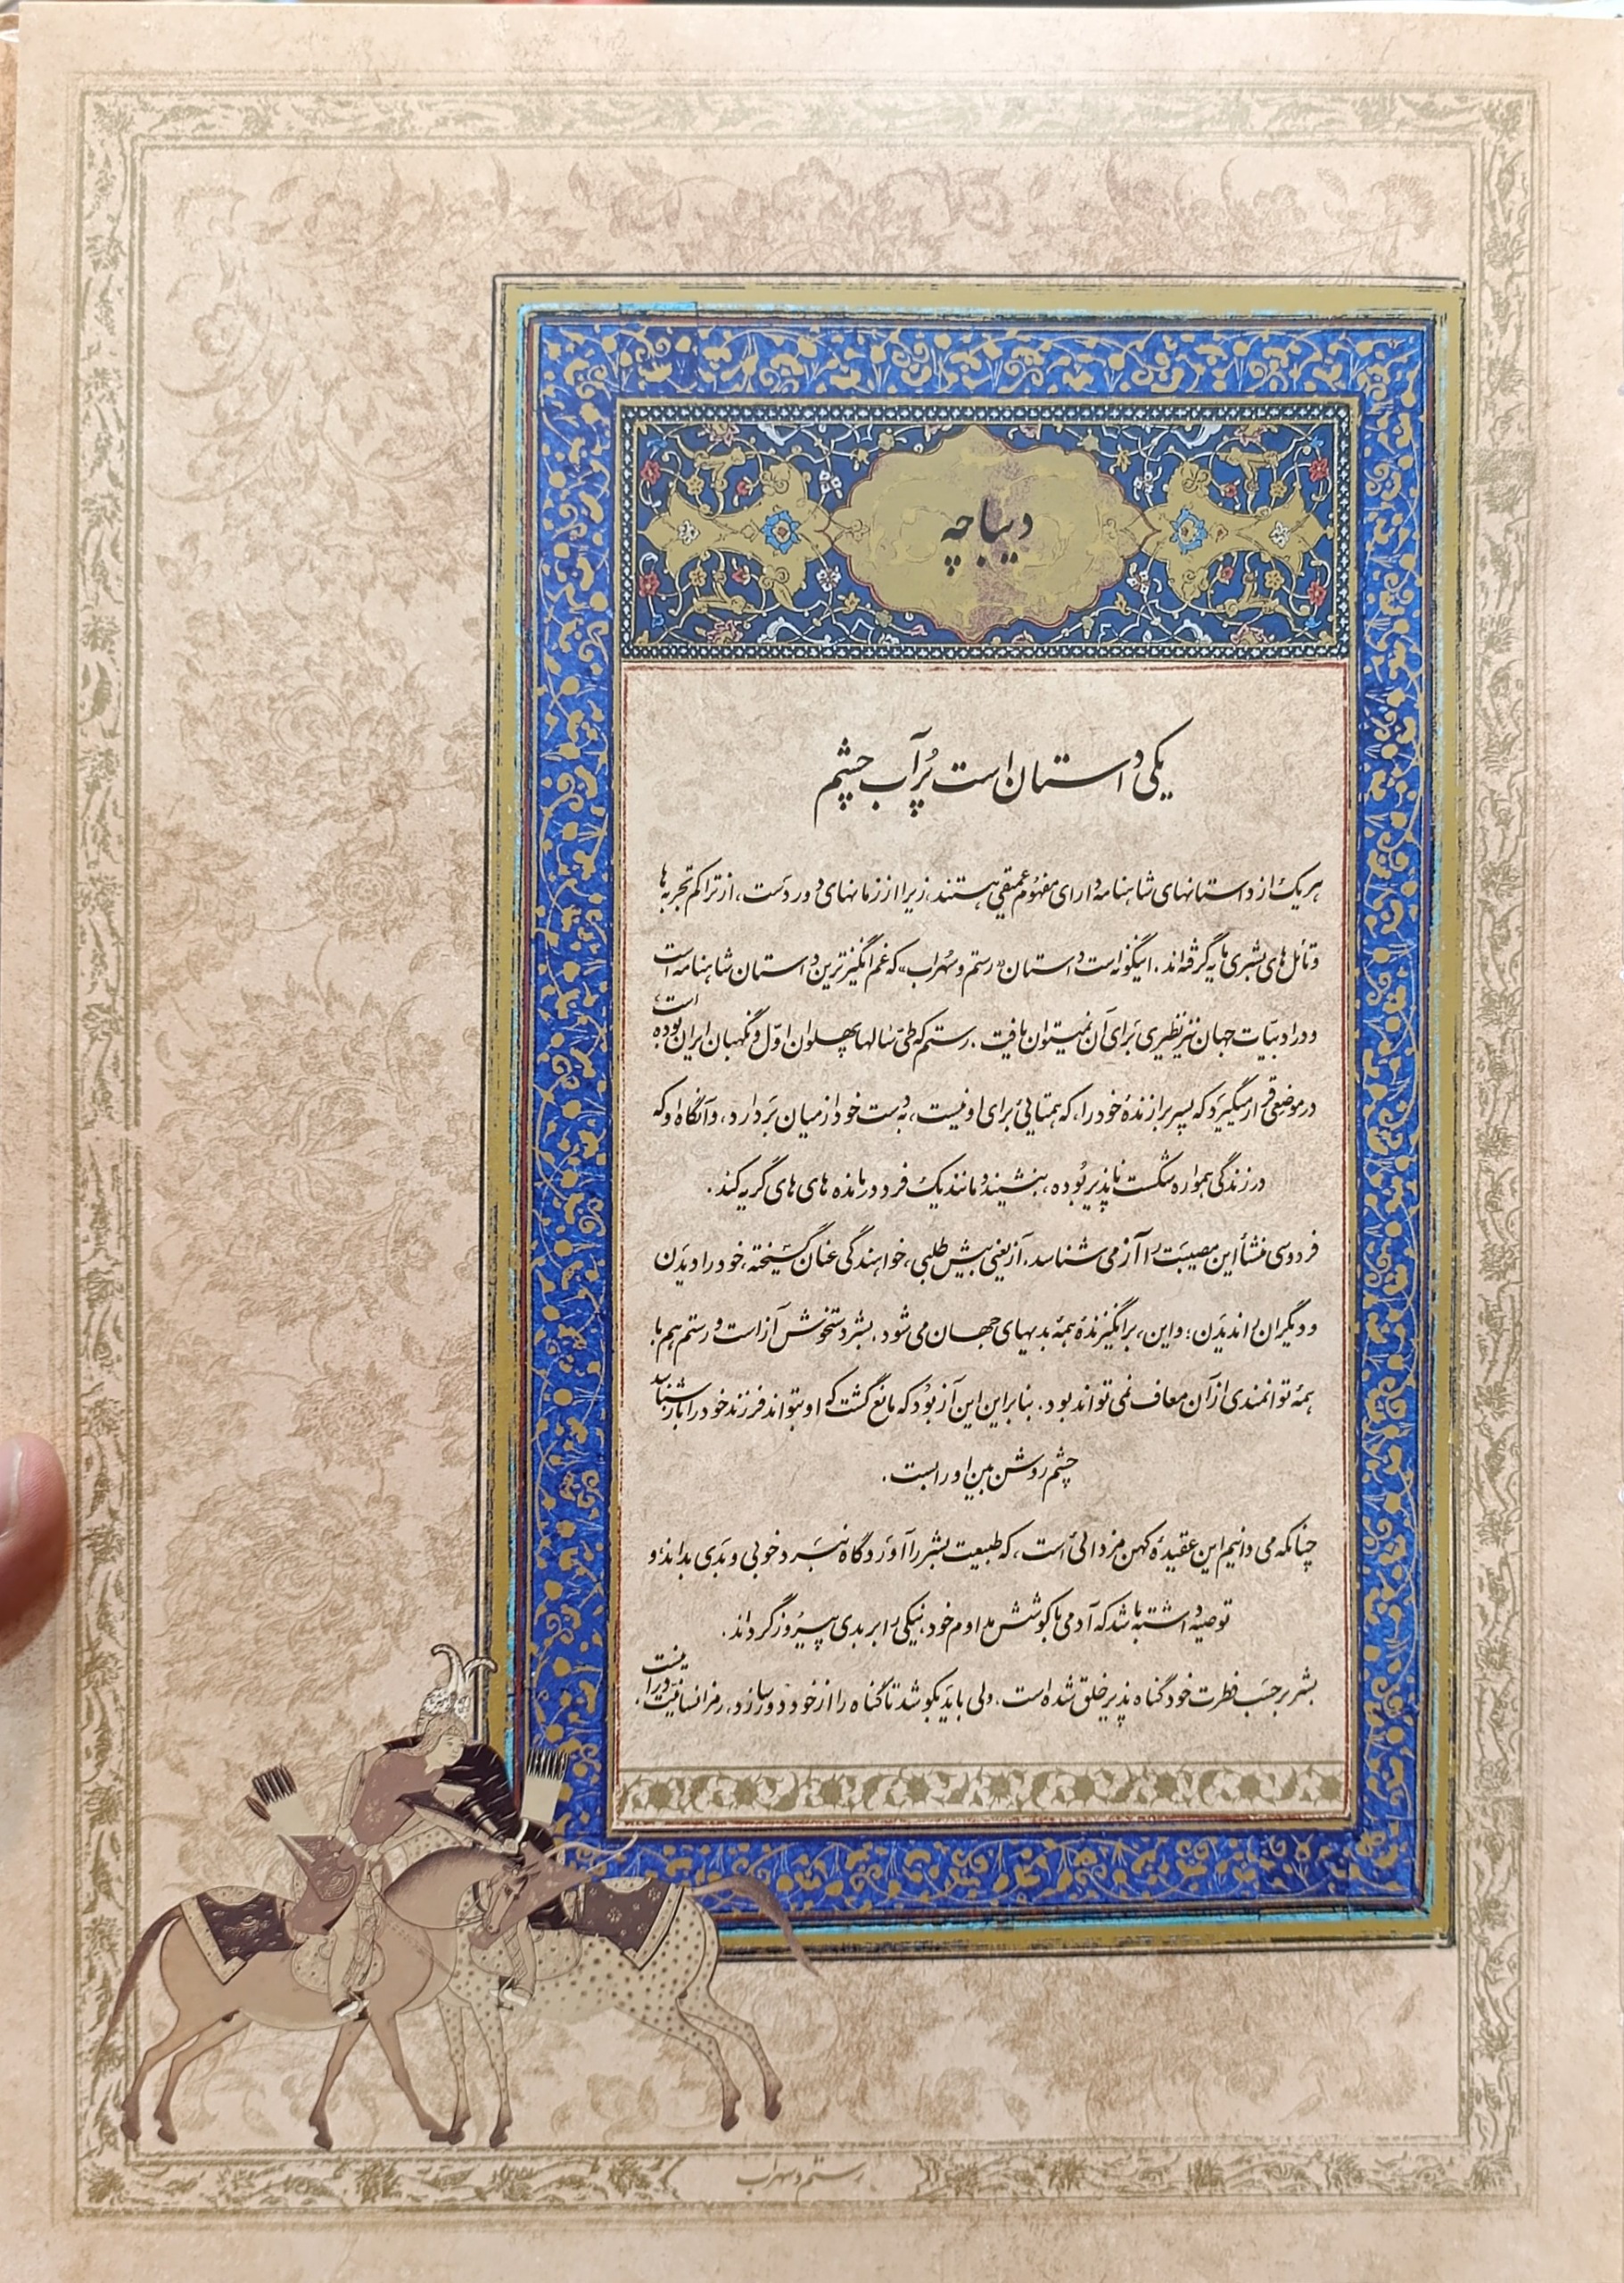 دیباچه
یکی داستان است پُر آب چشم
هر یک از داستانهای شاهنامه دارای مفهوم عمیقی هستند، زیرا از زمانهای دوردست، از تراکم تجربه‌ها
و تأمل‌های بشری مایه گرفته‌اند. اینگونه است داستان «رستم و سهراب» که غم‌انگیزترین داستان شاهنامه است
و در ادبیّات جهان نیز نظیری بَرای آن نمیتوان یافت. رستم که طیّ سالها پهلوان اوّل و نگهبان ایران بوده است،
در موضعی قرار میگیرَد که پسر برازندهٔ خود را، که همتایی برای او نیست، به دست خود از میان بَردارد، و آنگاه او که
در زندگی همواره شکست ناپذیر بُوده، بنشیند و مانند یک فرد درمانده های های گریه کند.
فردوسی منشأ این مصیبَت را آز می‌شناسد. آز یعنی بیش طلبی، خواهندگی عنان گسیخته، خود را دیدَن
و دیگران را ندیدَن؛ و این، برانگیزندهٔ همهٔ بدیهای جهان می‌شود. بشر دستخوش آز است و رستم هم با
همهٔ توانمندی از آن معاف نمی‌تواند بود. بنابراین این آز بُود که مانع گشت که او بتواند فرزند خود را باز شناسد
چشم روشن بین او را بست.
چنانکه می‌دانیم این عقیدهٔ کهن مزدائی است، که طبیعت بشر را آوردگاه نبَرد خوبی و بَدی بداند، و
توصیه داشته باشد که آدمی با کوشش مداوم خود، نیکی را بر بدی پیرُوز گرداند.
بشر بر حسَب فطرت خود گناه پذیر خلق شده است، ولی باید بکوشد تا گناه را از خود دور سازد، رمز انسانیّت در این است.
رستم و سهراب